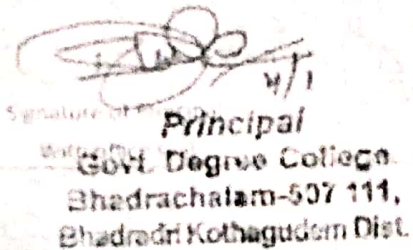 4/1
Signature of
Principal
Govt. Degree College
Bhadrachalam-507 111,
Bhadradri Kothagudem Dist.